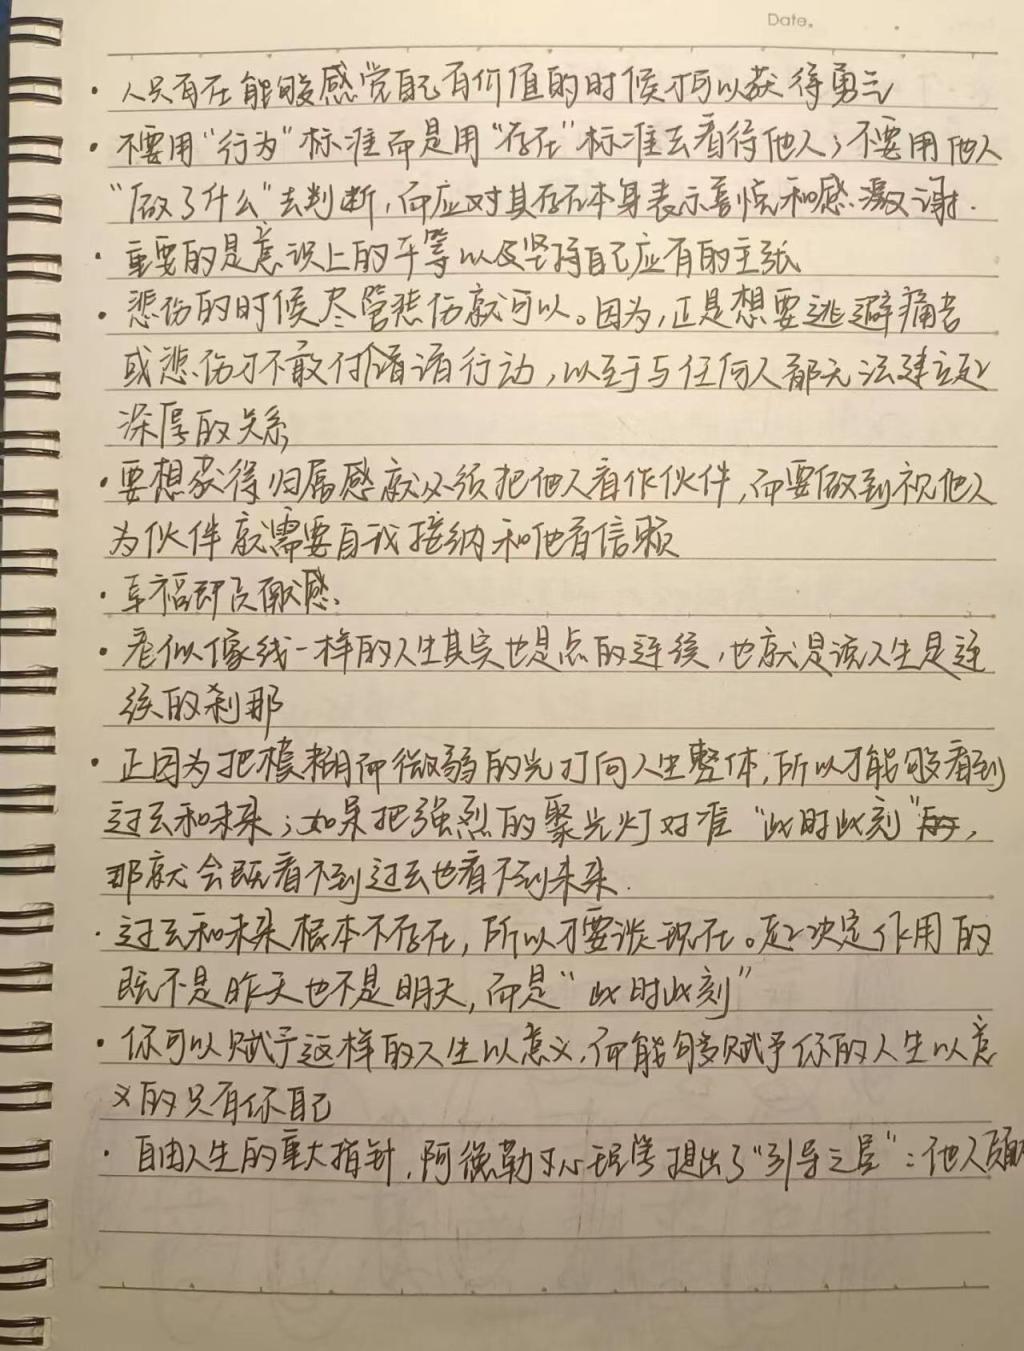 Date.
· 人只有在能够感觉自己有价值的时候才可以获得勇气
· 不要用“行为”标准而是用“存在”标准去看待他人；不要用他人
“做了什么”去判断，而应对其存在本身表示喜悦和感激谢.
· 重要的是意识上的平等以及坚持自己应有的主张
· 悲伤的时候尽管悲伤就可以。因为，正是想要逃避痛苦
或悲伤才不敢付诸行动，以至于与任何人都无法建立起
深厚的关系
· 要想获得归属感就必须把他人看作伙件，而要做到视他人
为伙伴就需要自我接纳和他者信赖
· 幸福即贡献感.
· 看似像线一样的人生其实也是点的连续，也就是说人生是连
续的刹那
· 正因为把模糊而微弱的光打向人生整体，所以才能够看到
过去和未来；如果把强烈的聚光灯对准“此时此刻”，
那就会既看不到过去也看不到未来.
· 过去和未来根本不存在，所以才要谈现在。起决定作用的
既不是昨天也不是明天，而是“此时此刻”
· 你可以赋予这样的人生以意义，而能够赋予你的人生以意
义的只有你自己
· 自由人生的重大指针，阿德勒心理学提出了“引导之星”：他人贡献